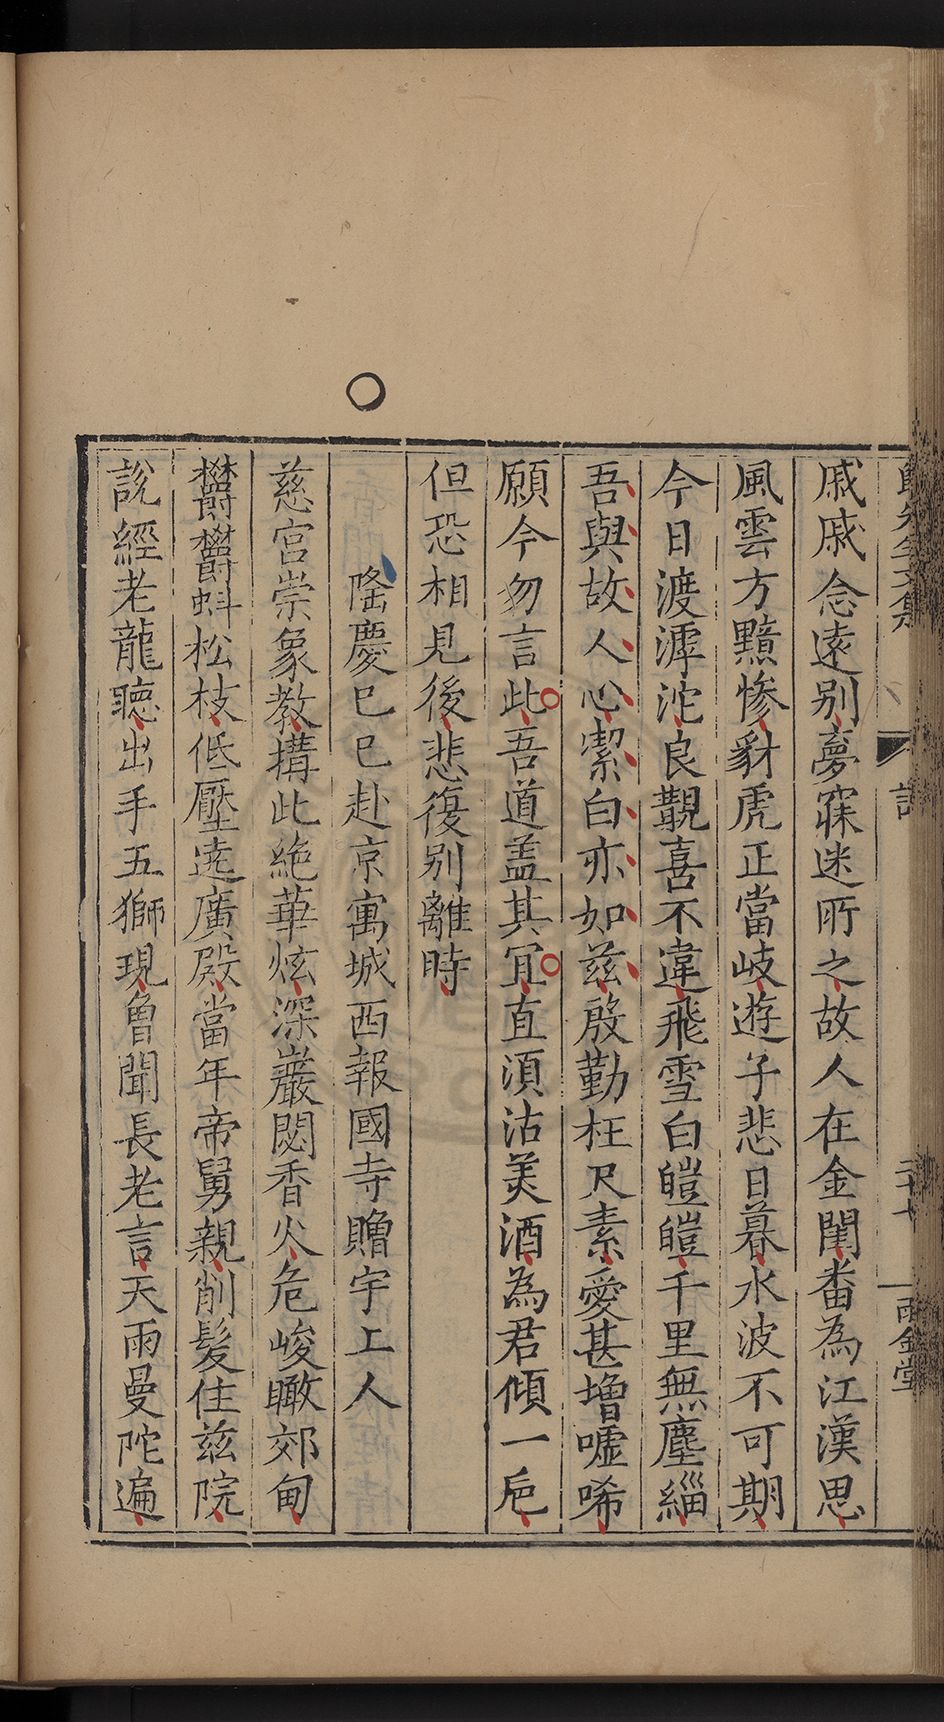 戚戚念遠别夢寐迷所之故人在金閨畨為江漢思
風雲方黯慘豺虎正當岐遊子悲日暮水波不可期
今日渡滹沱良覯喜不違飛雪白皚皚千里無塵緇
吾與故人心潔白亦如兹殷勤枉尺素愛甚增噓唏
願今勿言此吾道盖其冝直須沽美酒為君傾一巵
但恐相見後悲復别離時
隆慶巳巳赴京寓城西報國寺贈宇上人
慈宫崇象教搆此絶華炫深巖閟香火危峻瞰郊甸
欝欝蚪松枝低壓遶廣殿當年帝舅親削髮住兹院
說經老龍聽出手五獅現曾聞長老言天雨曼陀遍
詩
二十七
雨金堂